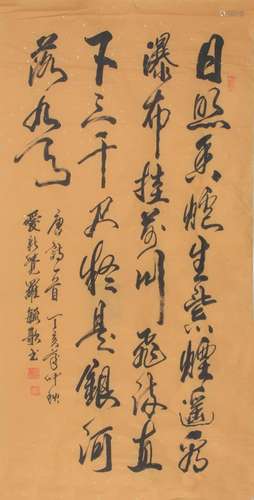 日照香炉生紫煙遥看
瀑布挂前川飛流直
下三千尺疑是銀河
落九天
唐詩一首 丁亥年仲秋
愛新覺羅毓歌书